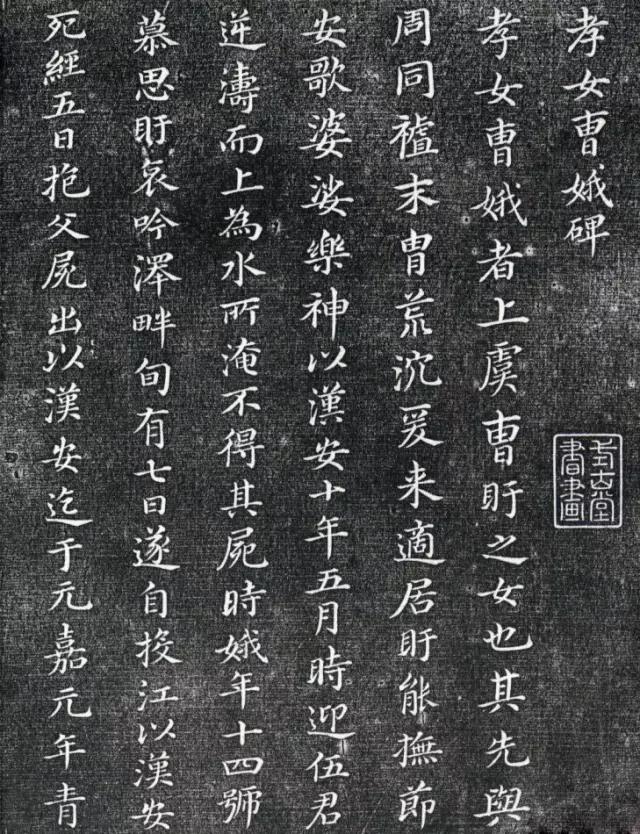 孝女曹娥碑
孝女曹娥者上虞曹盱之女也其先與
周同末胄荒沉爰来適居盱能撫節
安歌婆娑樂神以漢安十年五月時迎伍君
逆濤而上為水所淹不得其屍時娥年十四號
慕思盱哀吟澤畔旬有七日遂自投江以漢安
死經五日抱父屍出以漢安迄于元嘉元年青
堂書畫